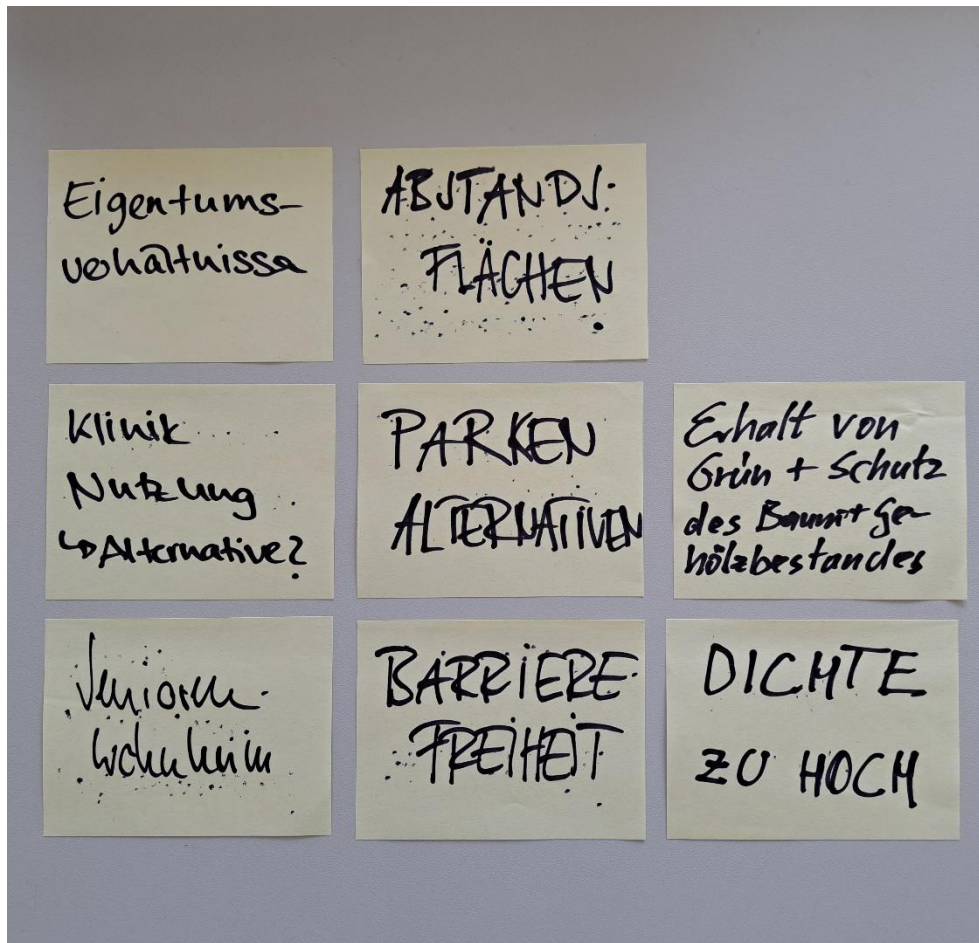 Eigentums-
verhältnisse
ABSTANDS-
FLÄCHEN
Klinik
Nutzung
↳ Alternative?
PARKEN
ALTERNATIVEN
Erhalt von
Grün + Schutz
des Baum + Ge-
hölzbestandes
Senioren-
wohnheim
BARRIERE-
FREIHEIT
DICHTE
ZU HOCH